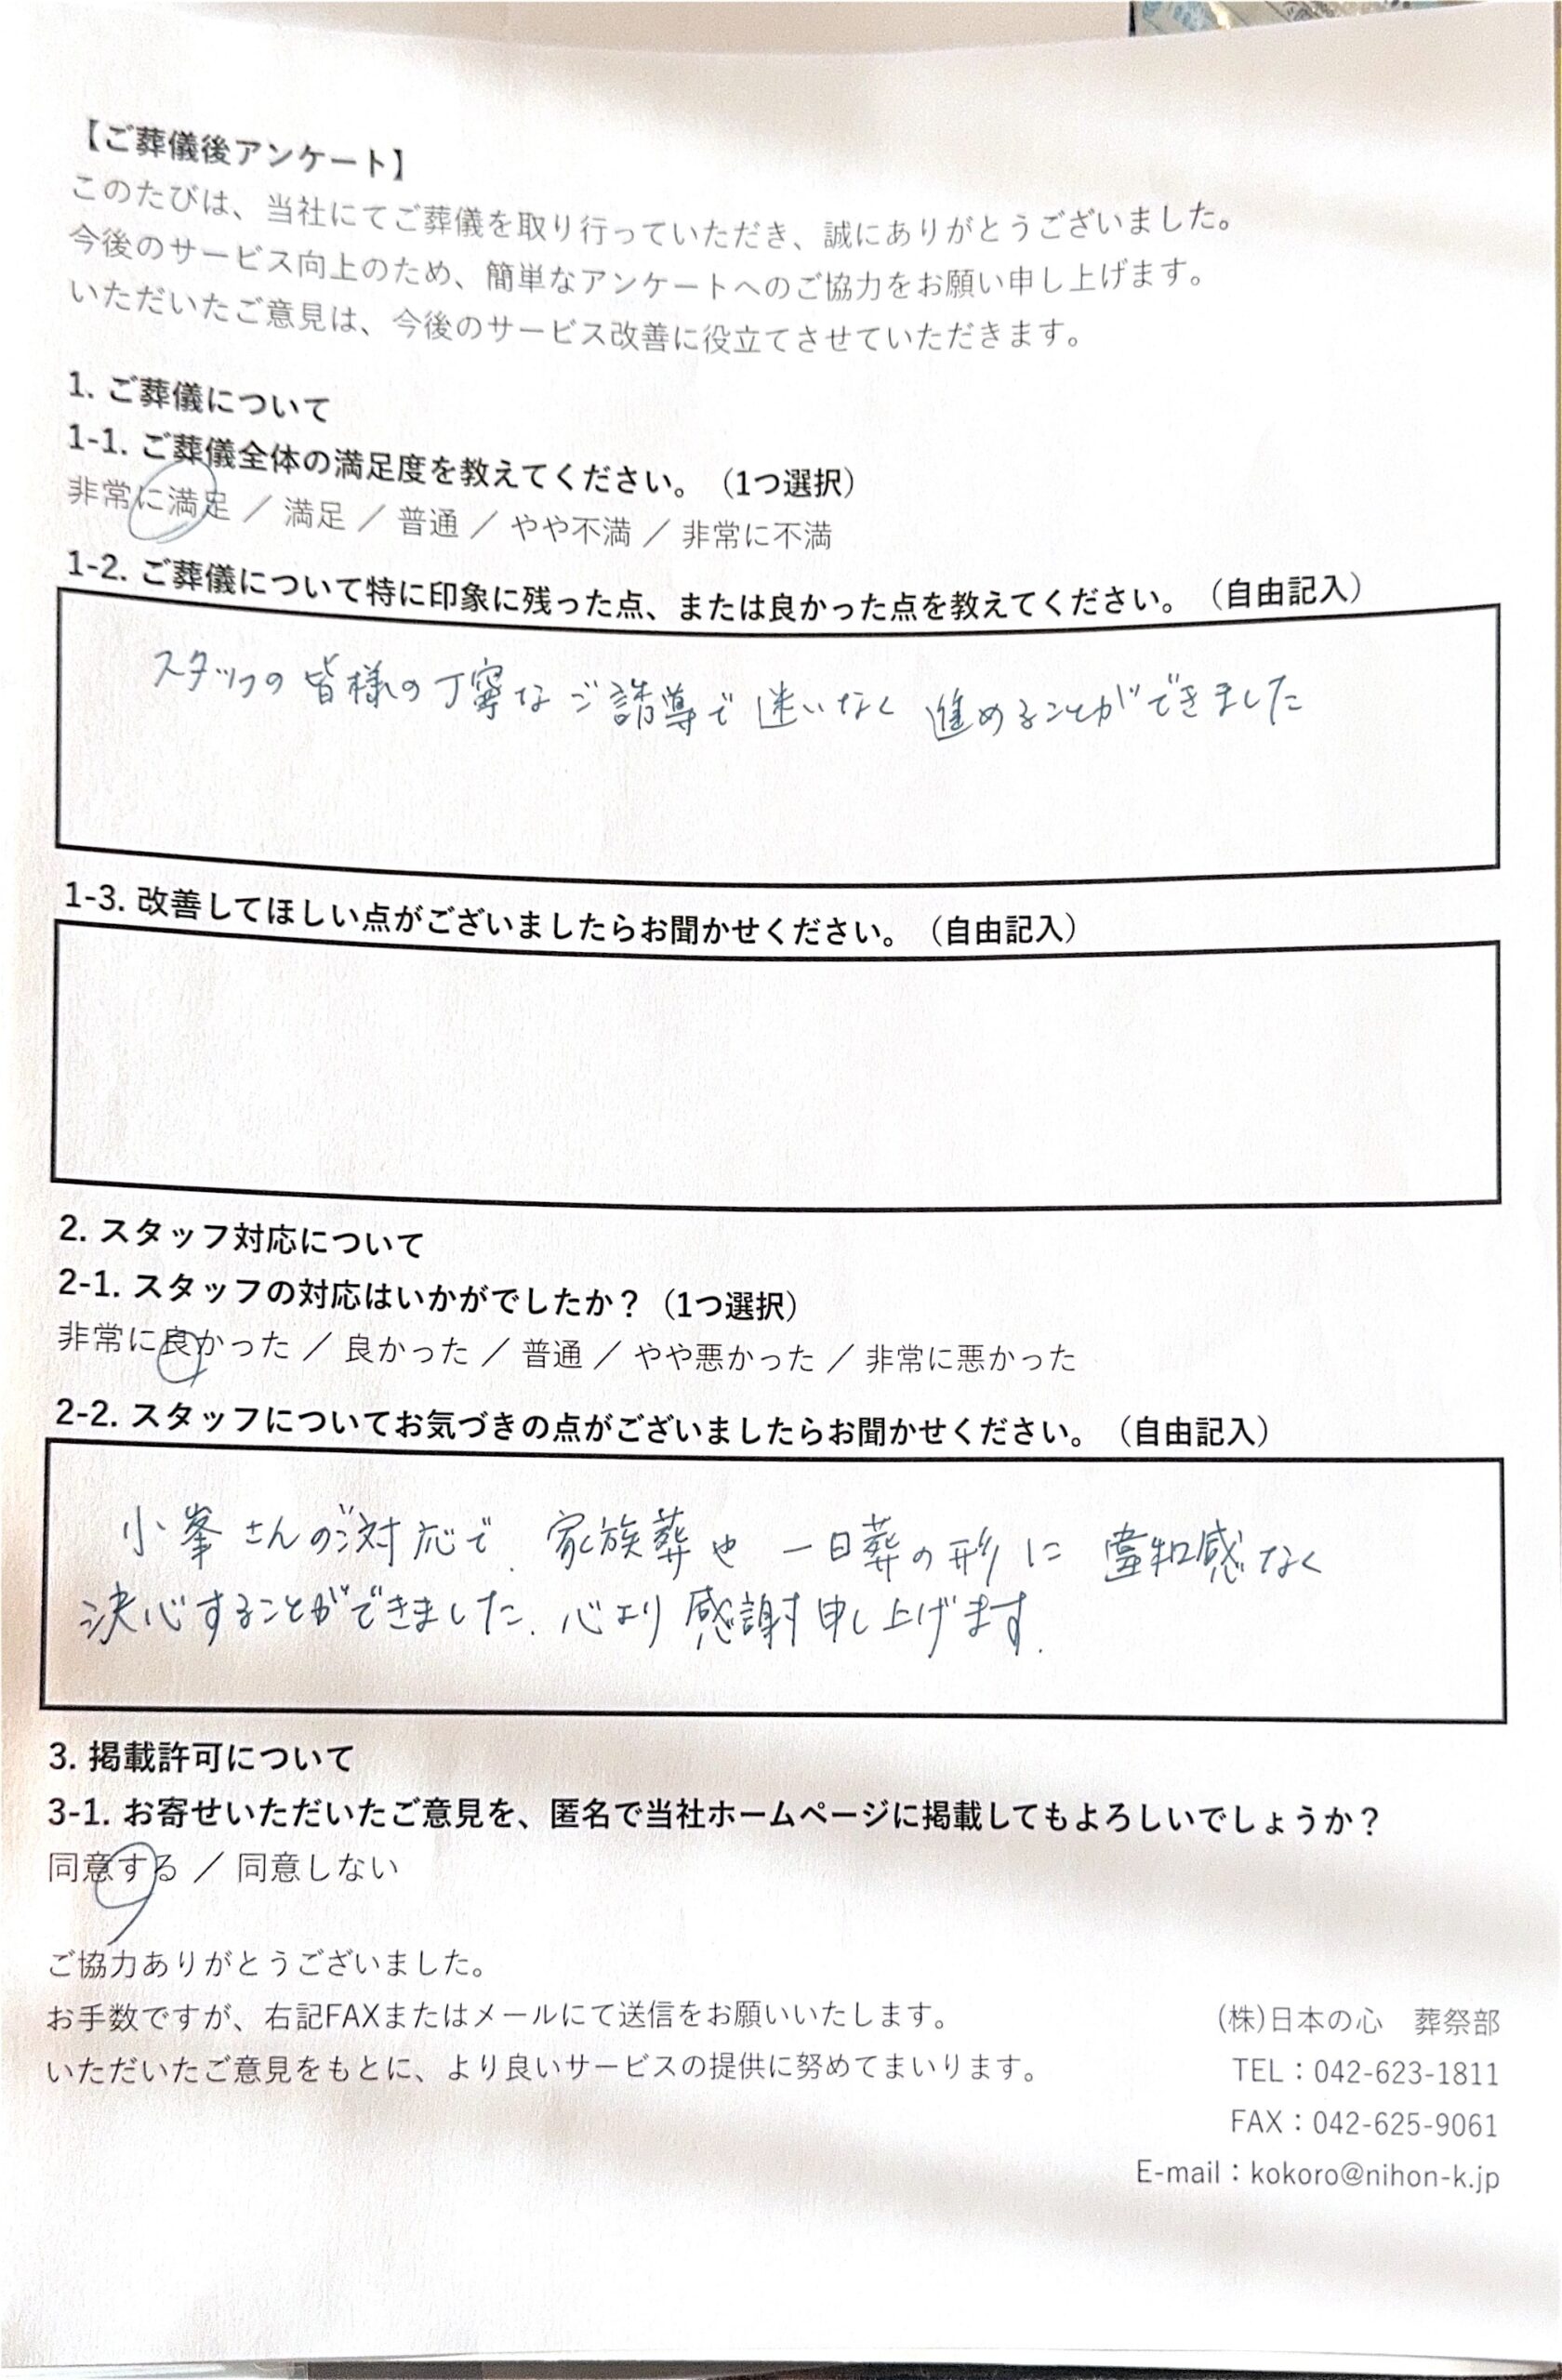 【ご葬儀後アンケート】
このたびは、当社にてご葬儀を取り行っていただき、誠にありがとうございました。
今後のサービス向上のため、簡単なアンケートへのご協力をお願い申し上げます。
いただいたご意見は、今後のサービス改善に役立てさせていただきます。
1. ご葬儀について
1-1. ご葬儀全体の満足度を教えてください。（1つ選択）
非常に満足 ／ 満足 ／ 普通 ／ やや不満 ／ 非常に不満
1-2. ご葬儀について特に印象に残った点、または良かった点を教えてください。（自由記入）
スタッフの皆様の丁寧なご誘導で迷いなく進めることができました
1-3. 改善してほしい点がございましたらお聞かせください。（自由記入）
2. スタッフ対応について
2-1. スタッフの対応はいかがでしたか？（1つ選択）
非常に良かった ／ 良かった ／ 普通 ／ やや悪かった ／ 非常に悪かった
2-2. スタッフについてお気づきの点がございましたらお聞かせください。（自由記入）
小峯さんのご対応で、家族葬や一日葬の形に違和感なく
決心することができました. 心より感謝申し上げます.
3. 掲載許可について
3-1. お寄せいただいたご意見を、匿名で当社ホームページに掲載してもよろしいでしょうか？
同意する ／ 同意しない
ご協力ありがとうございました。
お手数ですが、右記FAXまたはメールにて送信をお願いいたします。
いただいたご意見をもとに、より良いサービスの提供に努めてまいります。
(株)日本の心　葬祭部
TEL：042-623-1811
FAX：042-625-9061
E-mail：kokoro@nihon-k.jp